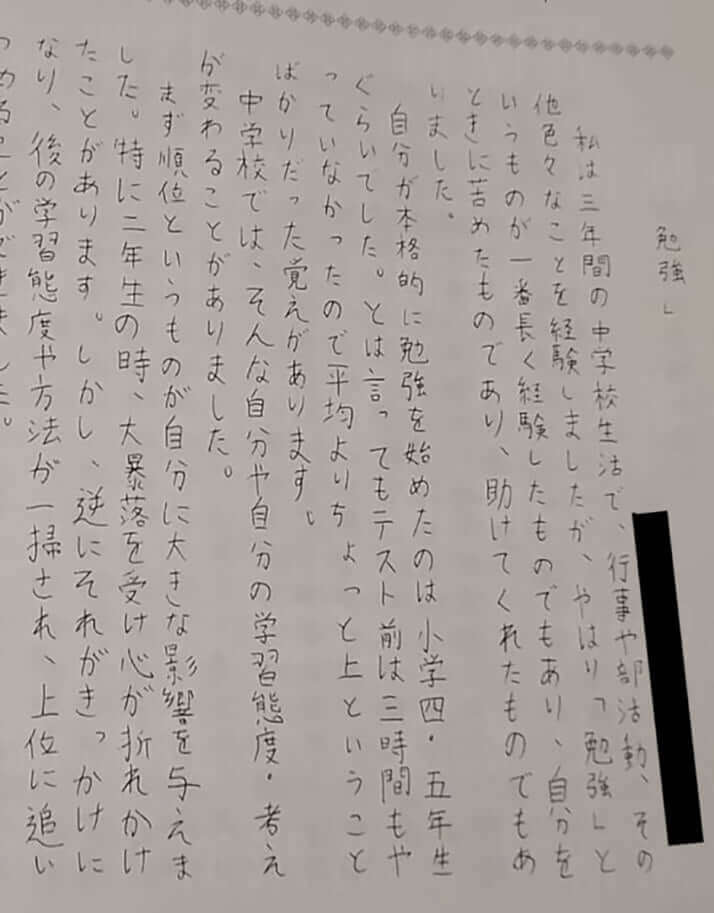 勉強」
私は三年間の中学校生活で、行事や部活動、その
他色々なことを経験しましたが、やはり「勉強」と
いうものが一番長く経験したものでもあり、自分を
ときに苦めたものであり、助けてくれたものでもあ
いました。
自分が本格的に勉強を始めたのは小学四・五年生
ぐらいでした。とは言ってもテスト前は三時間もや
っていなかったので平均よりちょっと上ということ
ばかりだった覚えがあります。
中学校では、そんな自分や自分の学習態度・考え
が変わることがありました。
まず順位というものが自分に大きな影響を与えま
した。特に二年生の時、大暴落を受け心が折れかけ
たことがあります。しかし、逆にそれがきっかけに
なり、後の学習態度や方法が一掃され、上位に追い
つめることができました。